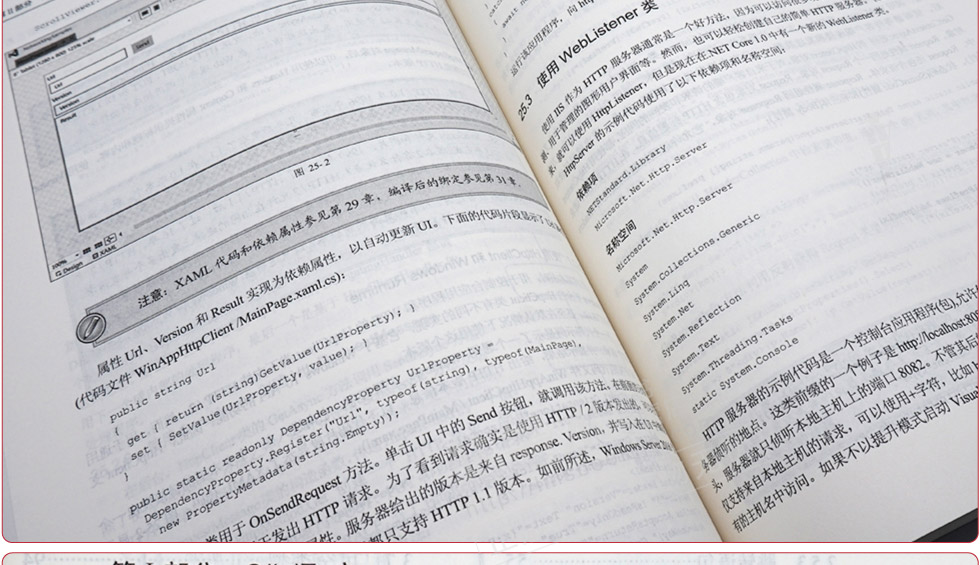 ScrollViewer
Url
Url
Send
Version
Version
Result
100%
Design
XAML
图 25-2
注意：XAML 代码和依赖属性参见第 29 章，编译后的绑定参见第 31 章。
属性 Url、Version 和 Result 实现为依赖属性，以自动更新 UI。下面的代码片段显示了
(代码文件 WinAppHttpClient /MainPage.xaml.cs)：
public string Url
{
get { return (string)GetValue(UrlProperty); }
set { SetValue(UrlProperty, value); }
}
public static readonly DependencyProperty UrlProperty =
DependencyProperty.Register("Url", typeof(string), typeof(MainPage),
new PropertyMetadata(string.Empty));
类用于 OnSendRequest 方法。单击 UI 中的 Send 按钮，就调用该方法。在
发出 HTTP 请求。为了看到请求确实是使用 HTTP /2 版本发出的，
属性。服务器给出的版本是来自 response. Version，并写入在 UI 中
都只支持 HTTP 1.1 版本。如前所述，Windows Server
运行该应用程序，向
25.3 使用 WebListener 类
使用 IIS 作为 HTTP 服务器通常是一个好方法，因为可以访问很多
用于管理的图形用户界面等。然而，也可以轻松创建自己的简单 HTTP 服务器。
来，就可以使用 HttpListener，但是现在在.NET Core 1.0 中有一个新的 WebListener 类。
HttpServer 的示例代码使用了以下依赖项和名称空间：
依赖项
NETStandard.Library
Microsoft.Net.Http.Server
名称空间
Microsoft.Net.Http.Server
System
System.Collections.Generic
System.Linq
System.Net
System.Reflection
System.Text
System.Threading.Tasks
static System.Console
HTTP 服务器的示例代码是一个控制台应用程序(包),允许
务器侦听的地点。这类前缀的一个例子是 http://localhost:
头，服务器就只侦听本地主机上的端口 8082。不管其后
仅支持来自本地主机的请求，可以使用+字符，比如
有的主机名中访问。如果不以提升模式启动 Visual